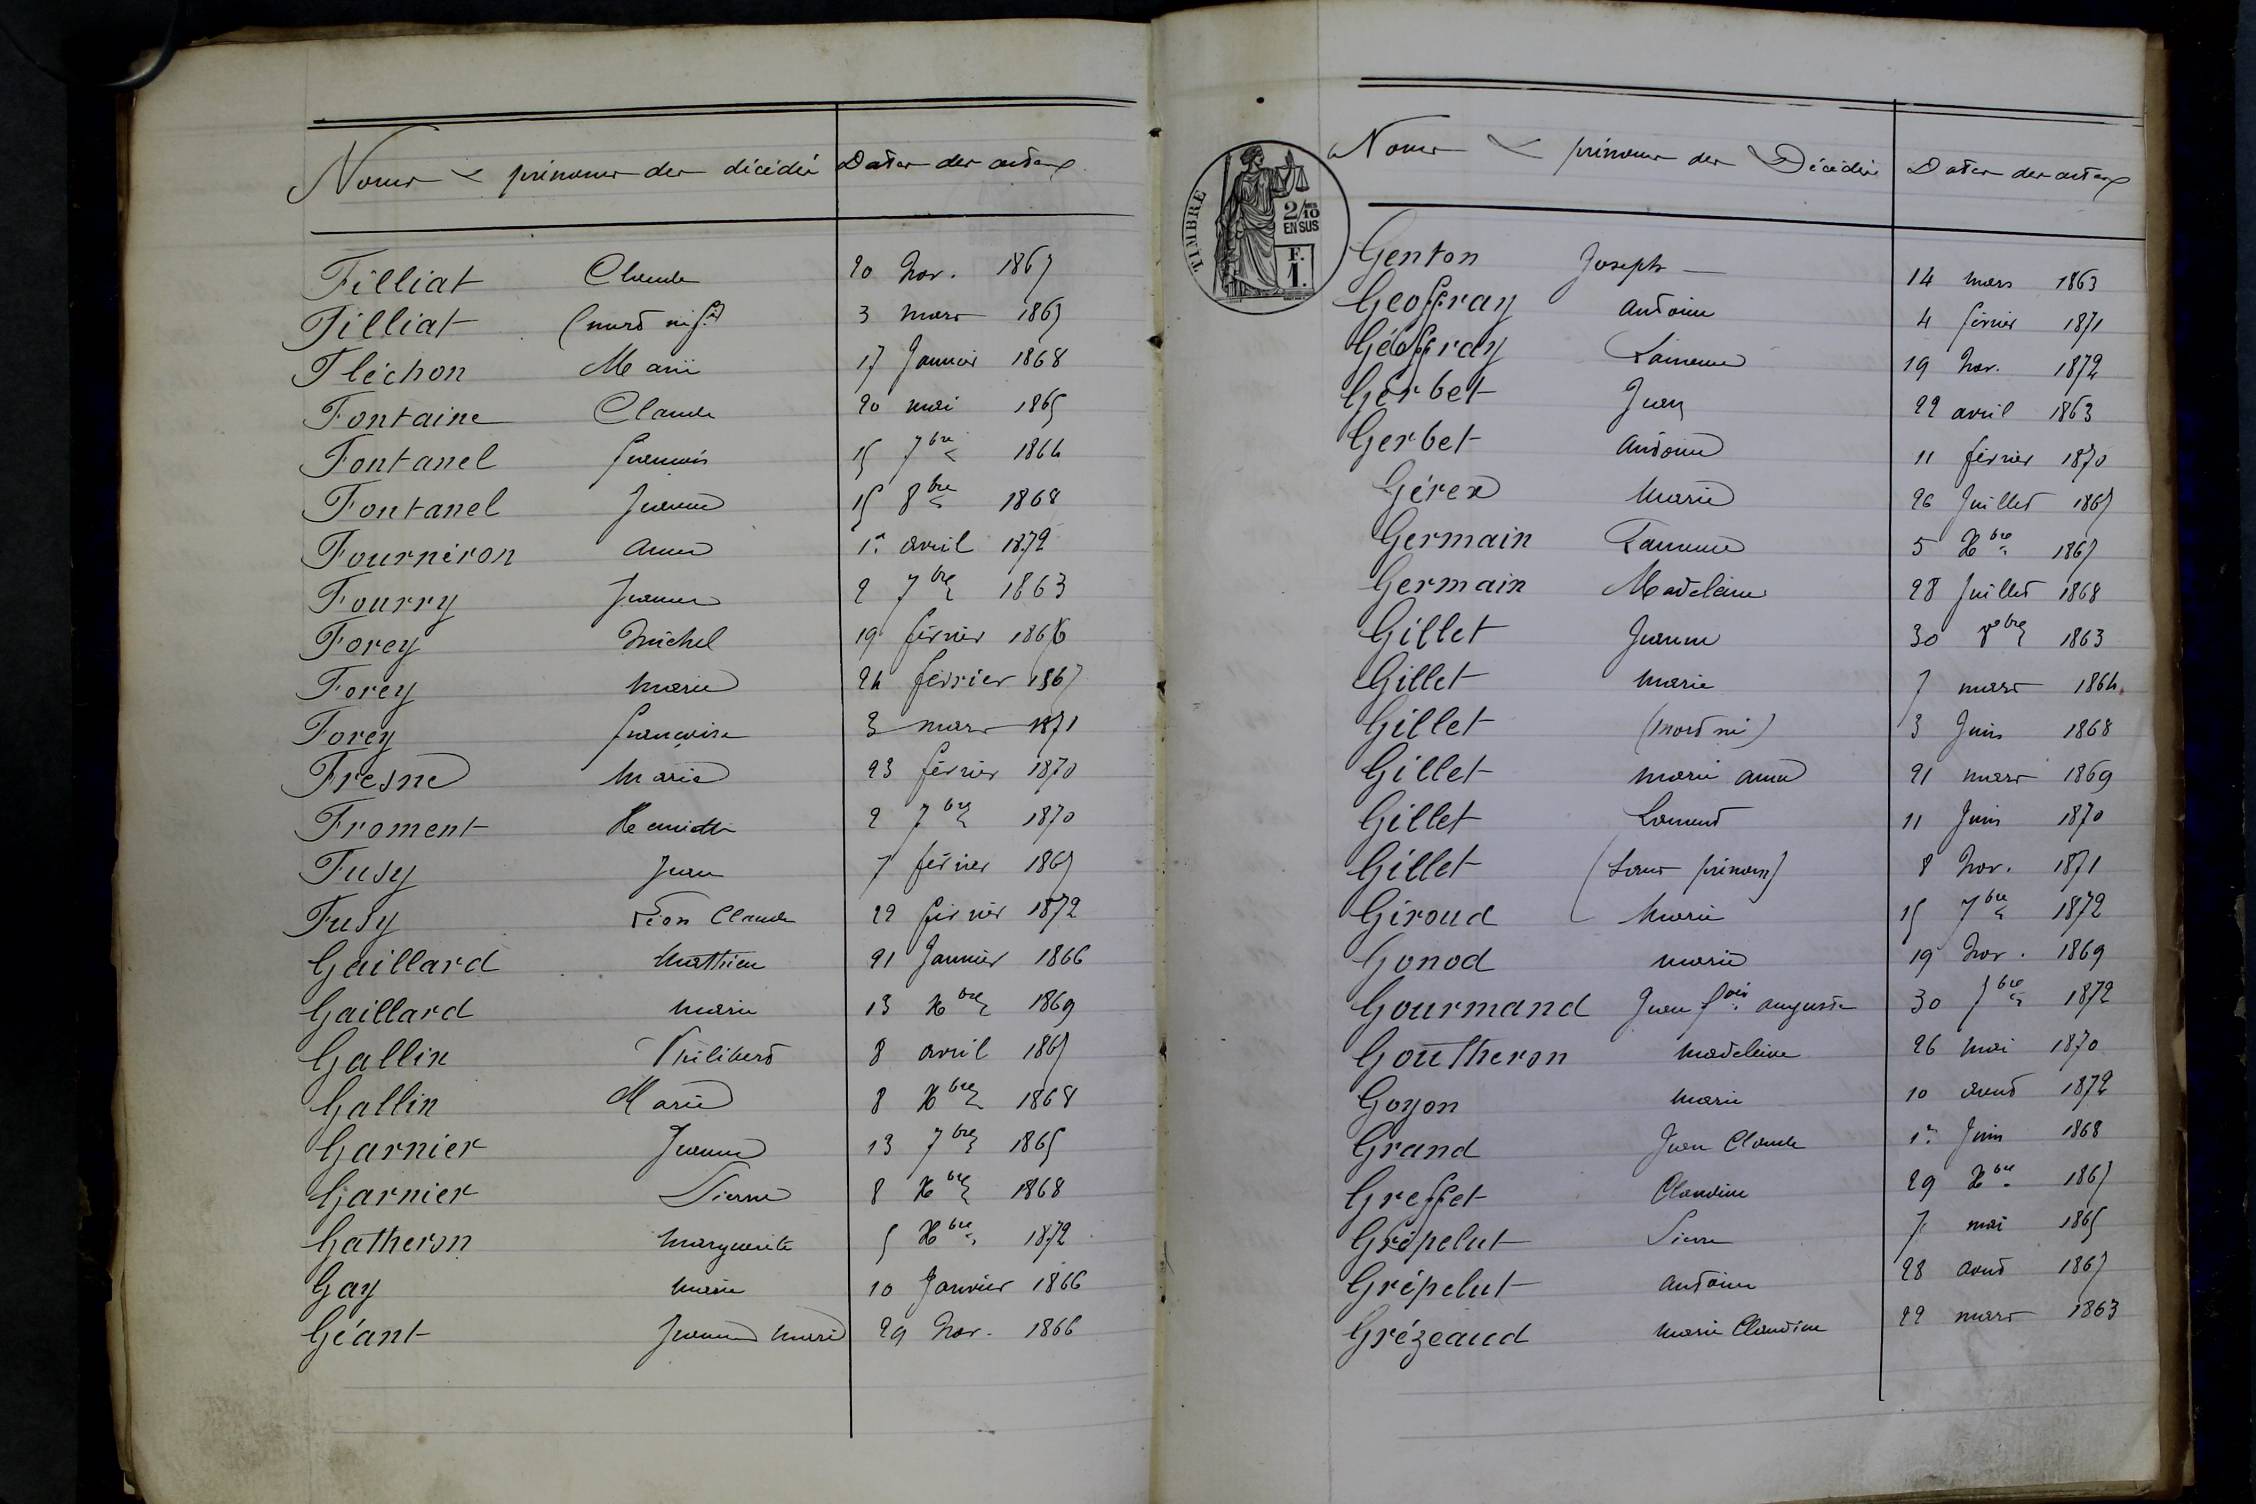 Noms & prénoms des décédés Dates des actes
Filliat Claude 20 Nov. 1867
Filliat (mort né 3 mars 1865
Fléchon Marie 17 Janvier 1868
Fontaine Claude 20 mai 1865
Fontanel François 15 7bre 1864
Fontanel Jeanne 15 8bre 1868
Fourniron Anne 1er avril 1872
Fourry Jeanne 2 7bre 1863
Forey Michel 19 février 1866
Forey Marie 24 février 1867
Forey françoise 3 mars 1871
Fresne Marie 23 février 1870
Froment 2 7bre 1870
Fusy Jean 7 février 1865
Fusy Léon Claude 22 février 1872
Gaillard Mathieu 21 Janvier 1866
Gaillard Marie 13 Xbre 1869
Gallin Philibert 8 avril 1865
Gallin Marie 8 Xbre 1868
Garnier Jeanne 13 7bre 1865
Garnier Pierre 8 Xbre 1868
Gatheron Marguerite 5 Xbre 1872
Gay Marie 10 Janvier 1866
Géant Jeanne Marie 29 Nov. 1866
TIMBRE
2/10
EN SUS
F.
1.
Noms & prénoms des Décédés Dates des actes
Genton Joseph 14 mars 1863
Geoffray Antoine 4 février 1871
Géoffray 19 Nov. 1872
Gerbet Jean 22 avril 1863
Gerbet Antoine 11 février 1870
Gérex Marie 26 Juillet 1865
Germain 5 Xbre 1867
Germain Madeleine 28 Juillet 1868
Gillet Jeanne 30 1863
Gillet Marie 7 mars 1864
Gillet (mort né) 3 Juin 1868
Gillet marie anne 21 mars 1869
Gillet Laurent 11 Juin 1870
Gillet (sans prénom) 8 Nov. 1871
Giroud Marie 15 7bre 1872
Gonod marie 19 Nov. 1869
Gourmand Jean fois auguste 30 7bre 1872
Goutheron Madeleine 26 Mai 1870
Goyon Marie 10 aout 1872
Grand Jean Claude 1er Juin 1868
Greffet Claudine 29 Xbre 1867
Grépelut Pierre 7 mai 1865
Grépelut Antoine 28 aout 1867
Grézeaud Marie Claudine 22 mars 1863